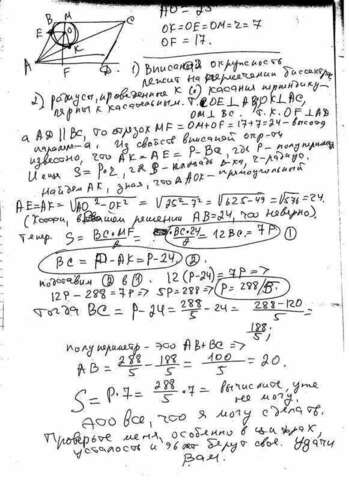 B M C
E O
K
A F D
AO = 25
OK = OE = OM = r = 7
OF = 17.
1) Вписанная окружность
лежит на пересечении биссектр
2) радиусы, проведенные к (·) касания перпендику-
лярны к касательным. Т.е. OE⊥AB, OK⊥AC,
OM⊥BC. Т.к. OF⊥AD
а AD ∥ BC, то отрезок MF = OM+OF = 17+7=24 - высота
параллел-а. Из свойств вписанной окр-ти
известно, что AK = AE = P-BC, где P - полупериметр
и еще S = P·r, где S - площадь Δ-ка, r - радиус.
Найдем AK, зная, что ΔAOK - прямоугольный
AE=AK= √AO²-OK² = √25²-7² = √625-49 = √576 = 24.
(Кстати, в вашем решении AB=24, что неверно).
Теперь S = BC·MF/2 = BC·24/2 = 12BC = 7P ①
BC = P - AK = P-24 ②.
подставим ② в ①. 12(P-24) = 7P =>
12P - 288 = 7P => 5P = 288 => P = 288/5.
Тогда BC = P - 24 = 288/5 - 24 = 288-120/5 =
188/5
полупериметр - это AB+BC =>
AB = 288/5 - 188/5 = 100/5 = 20.
S = P·7 = 288/5 · 7 = Вычислите, уже
не могу.
Это все, что я могу сделать.
Проверьте меня, особенно в цифрах,
усталость и 96 лет берут свое. Удачи
Вам.